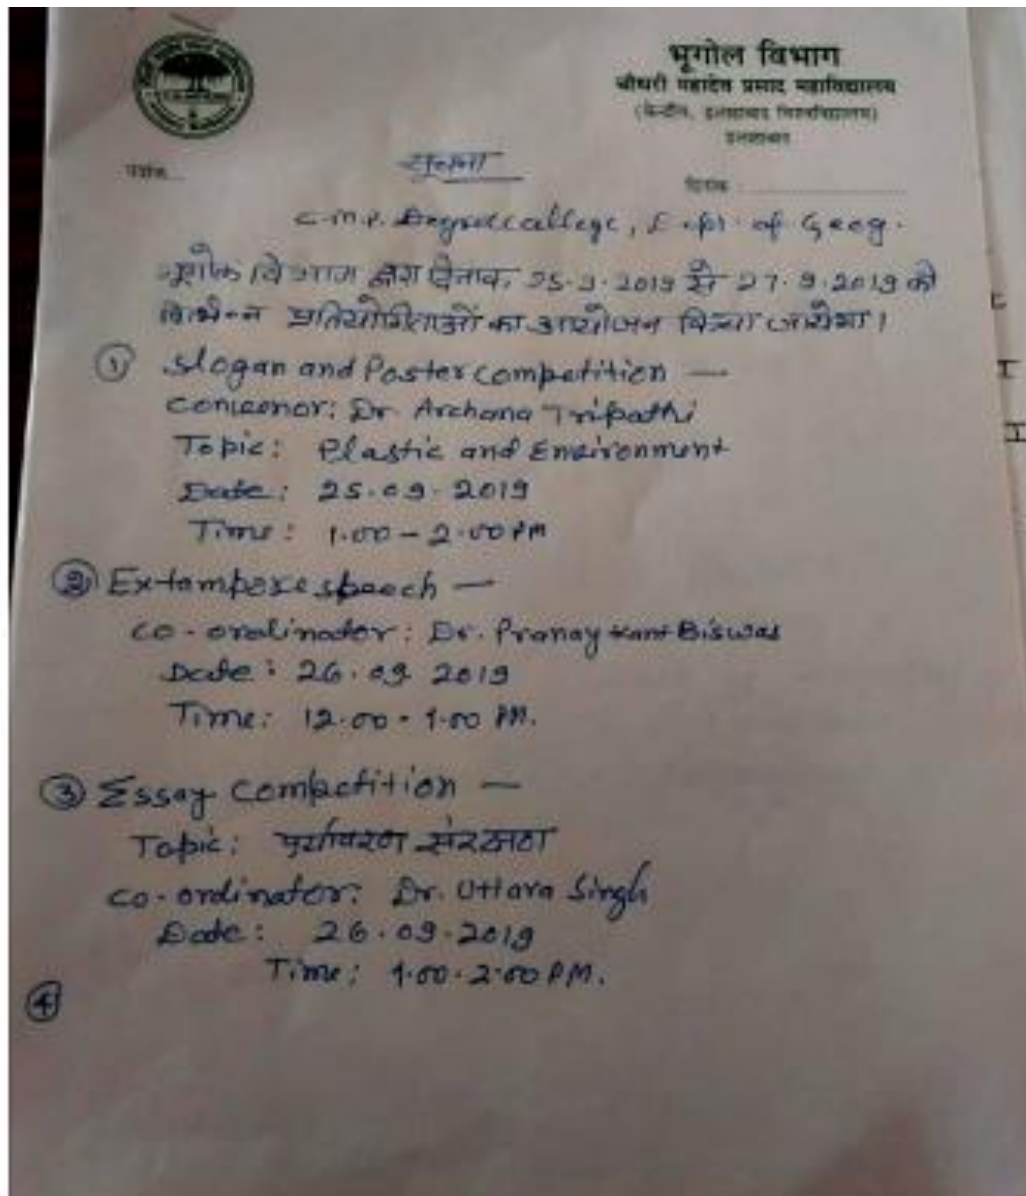 भूगोल विभाग
चौधरी महादेव प्रसाद महाविद्यालय
इलाहाबाद
पत्रांक
सूचना
दिनांक :
C.M.P. Degree College, Dept. of Geog.
भूगोल विभाग द्वारा दिनांक 25.9.2019 से 27.9.2019 को
विभिन्न प्रतियोगिताओं का आयोजन किया जायेगा।
① Slogan and Poster Competition —
Convenor: Dr. Archana Tripathi
Topic: Plastic and Environment
Date: 25.09.2019
Time: 1.00 – 2.00 PM
② Extempore speech —
Co-ordinator: Dr. Pranay Kant Biswas
Date: 26.09 2019
Time: 12.00 - 1.00 PM.
③ Essay Competition —
Topic: पर्यावरण संरक्षण
Co-ordinator: Dr. Uttara Singh
Date: 26.09.2019
Time: 1.00 - 2.00 PM.
④